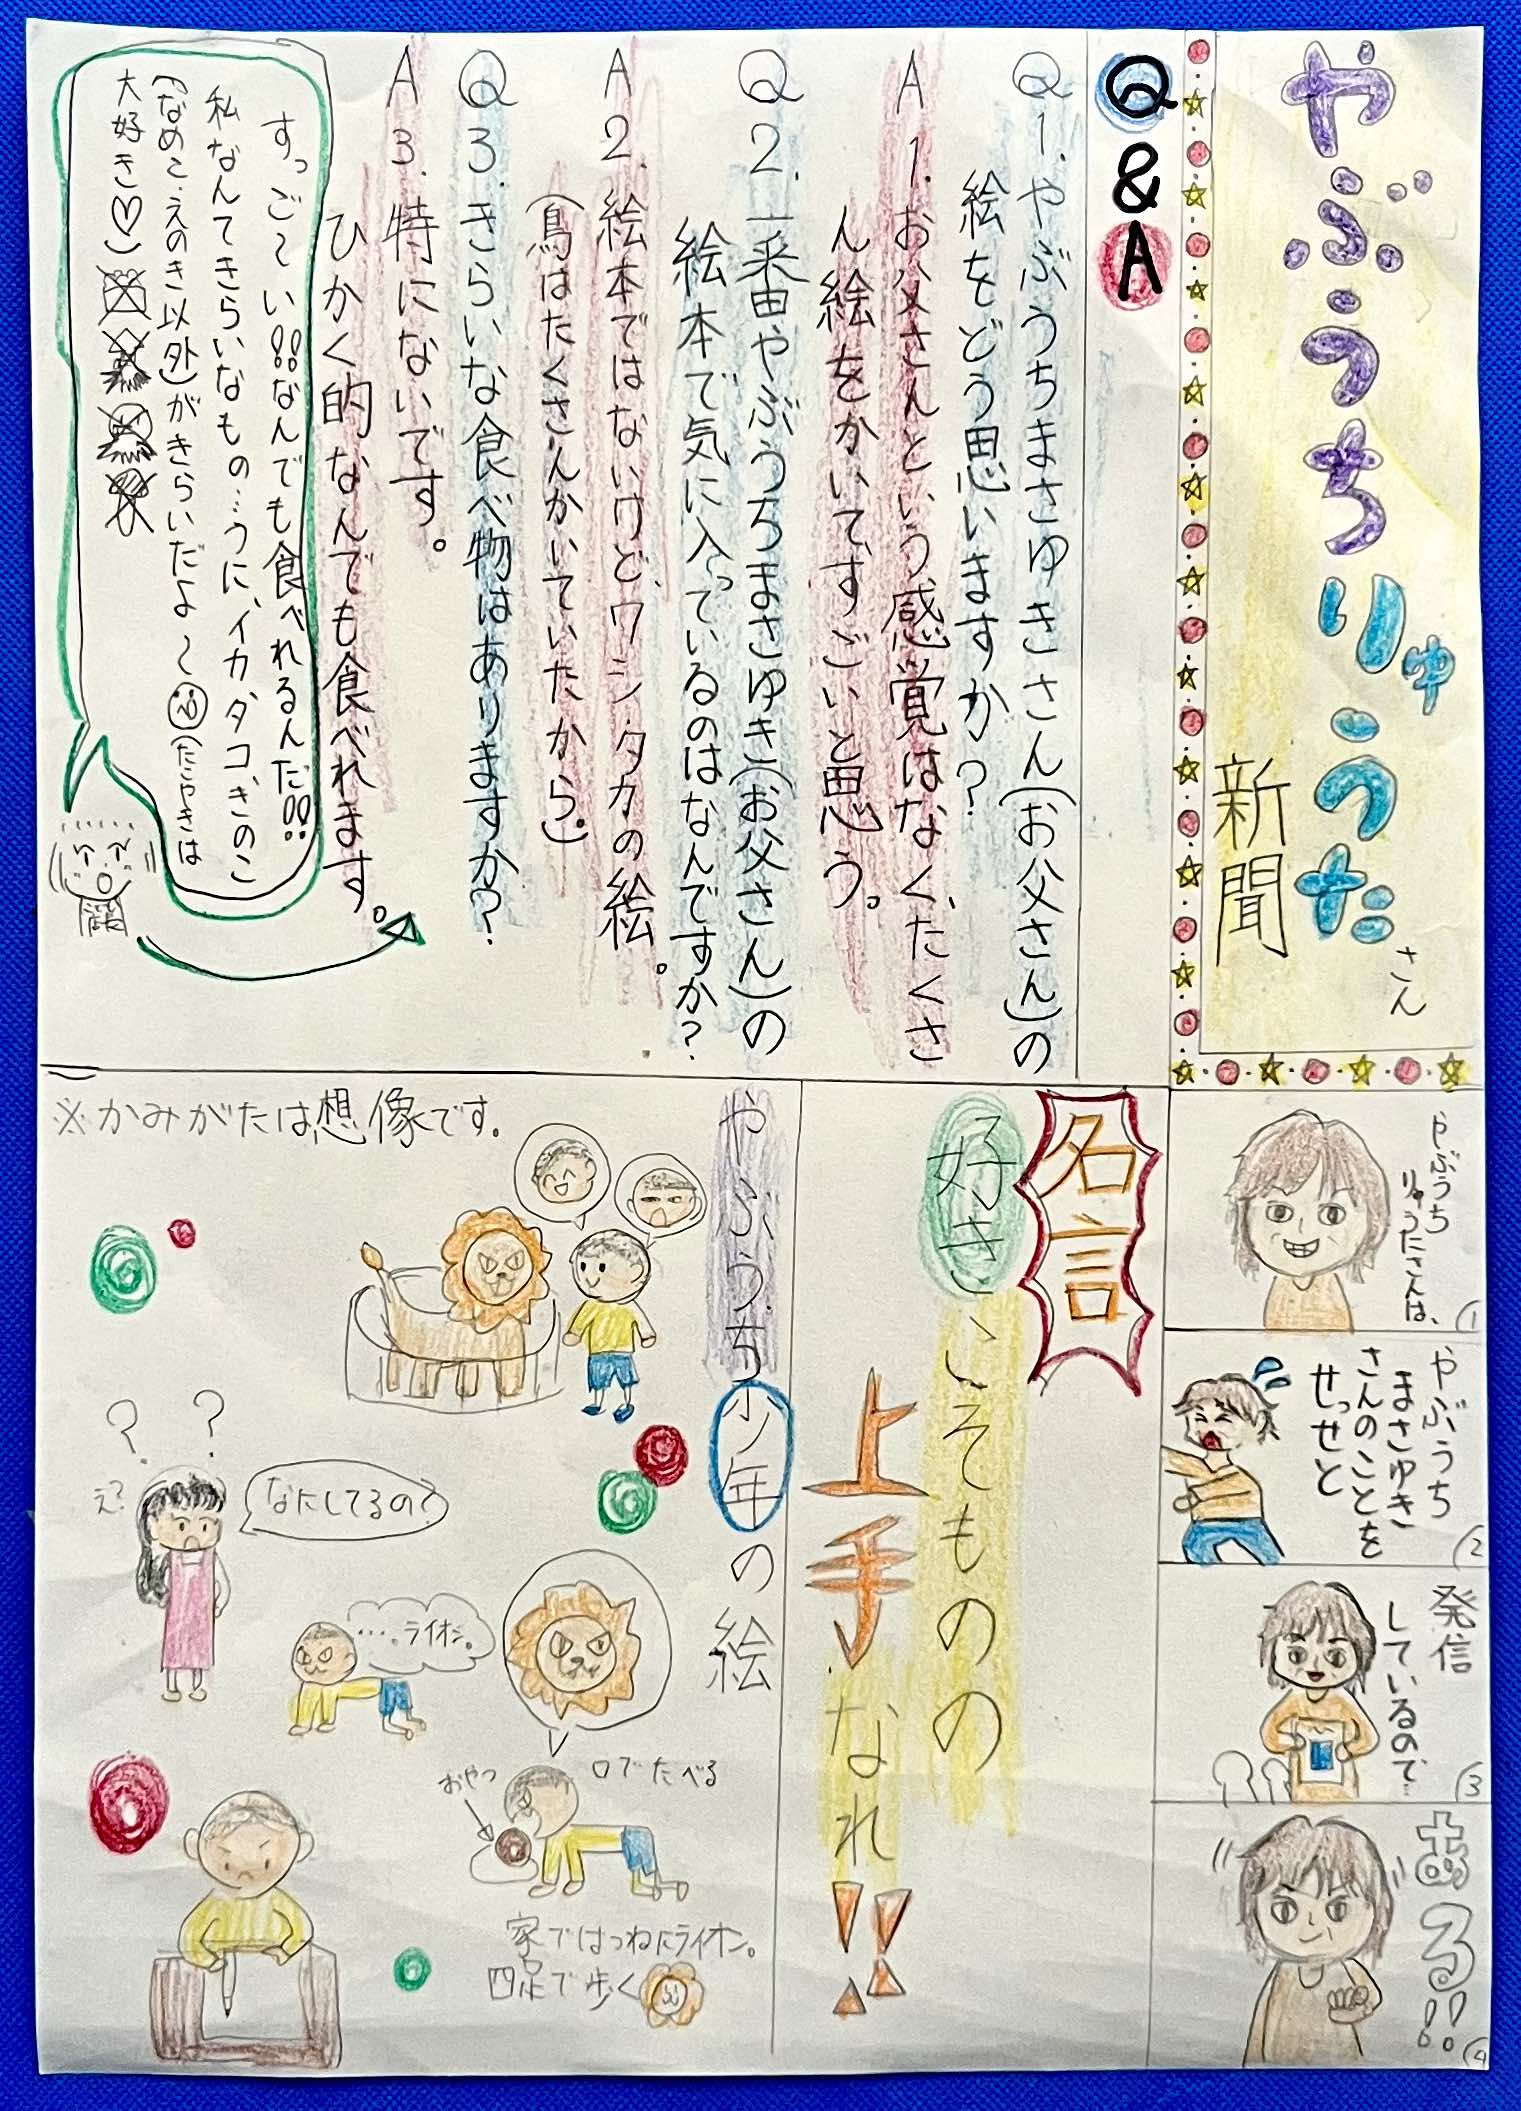 やぶうちりゅうたさん
新聞
Q&A
Q1.やぶうちまさゆきさん(お父さん)の
絵をどう思いますか?
A1.お父さんという感覚はなく、たくさ
ん絵をかいてすごいと思う。
Q2.一番やぶうちまさゆき(お父さん)の
絵本で気に入っているのはなんですか?
A2.絵本ではないけど、ワシ・タカの絵。
(鳥はたくさんかいていたから。)
Q3.きらいな食べ物はありますか?
A3.特にないです。
ひかく的なんでも食べれます。
すっご〜い!!なんでも食べれるんだ!!
私なんてきらいなもの…うに、イカ、タコ、きのこ
(なめこ・えのき以外)がきらいだよ〜(たこやきは
大好き♡)
やぶうち
りゅうたさんは、
1
やぶうち
まさゆき
さんのことを
せっせと
2
発信
しているので…
3
ある!!
4
名言
好きこそものの
上手なれ!!
やぶうち少年の絵
※かみがたは想像です。
え?
? ?
なにしてるの?
…ライオン。
おやつ
口でたべる
家ではつねにライオン。
四足で歩く